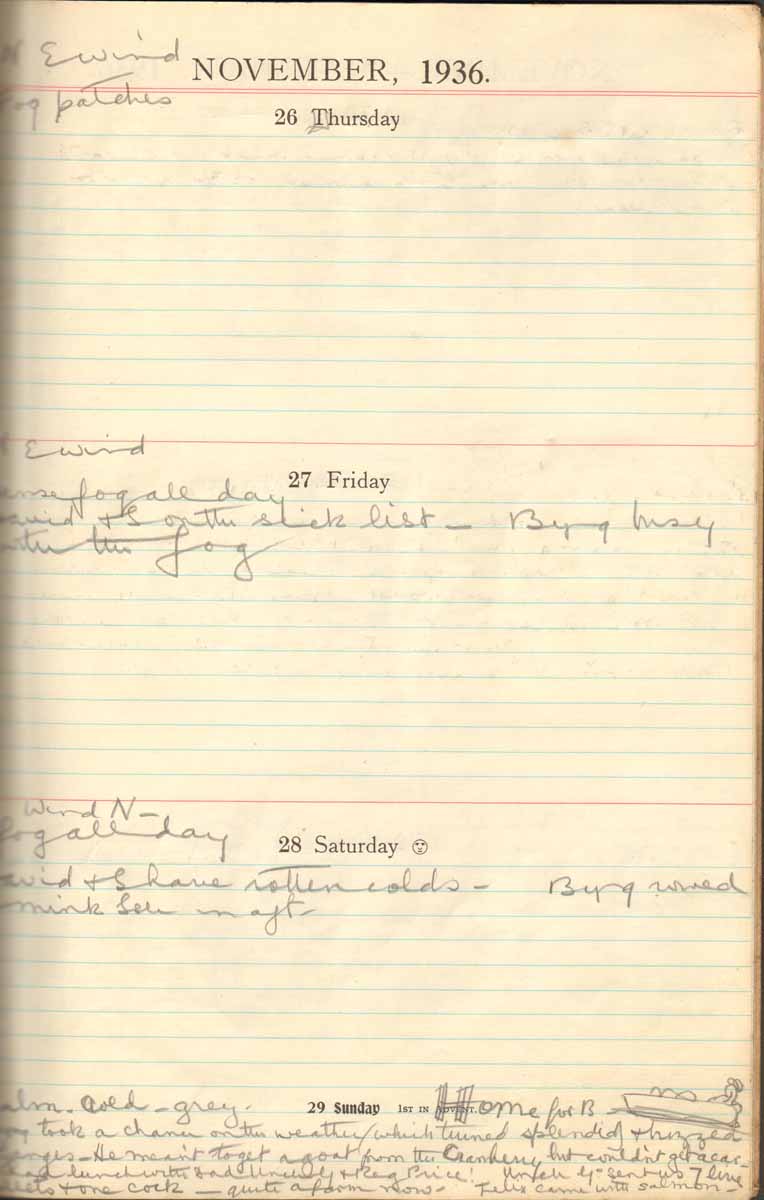 E wind
NOVEMBER, 1936.
fog patches
26 Thursday
E wind
27 Friday
fog all day
& S on the sick list — Byng busy
the fog
Wind N —
fog all day
28 Saturday
& S have rotten colds — Byng
mink in aft —
cold — grey.
29 Sunday 1ST IN ADVENT. Home for B —
took a chance on the weather, which turned splendid &
— He meant to get a goat from the Cranberry, but couldn't get
lunch with & Reg Price! sent us 7 live
& one cock — quite a farm now — Felix came with salmon